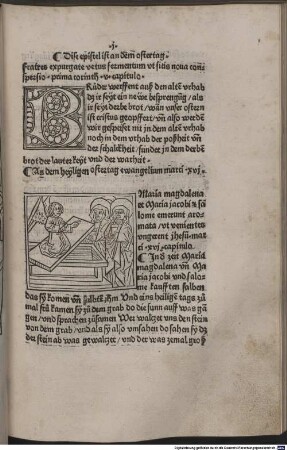 .j.
¶ Disz epistel ist an dem ostertag.
Fratres expurgate vetus fermentum vt sitis noua com
spersio. prima corinth. v. capitulo.
BRůder werffent auß den alten vrhab
dz ir seyt ein newe besprengug/ als
ir seyt derbe brot/ wan vnser ostern
ist cristus geopffert/ vñ also werdē
wir gespeiset nit in dem alten vrhab
noch in dem vrhab der poßheit vnn
der schalckheit/ sunder in dem derben
brot der lauterkeyt vnd der warheit.
¶ An dem heyligen ostertag ewangelium marci .xvj.
MAria magdalena
et Maria jacobi & sa
lome emerunt aro-
mata/ vt venientes
vngerent jhesū. mar
ci .xvj. capitulo.
¶ In d zeit Maria
magdalena vñ Ma
ria jacobi vnd salo
me kaufften salben
das sy komen vnd salbtē jhm Vnd eins heiligē tags zů
mal frů kamen sy zů dem grab do die sunn auff was gā
gen/ vnd sprachen zůsamen Wer waltzet vns den stein
von dem grab/ vnd als sy also vmsahen do sahen sy dz
der stein ab was gewaltzet/ vnd der was zemal groß